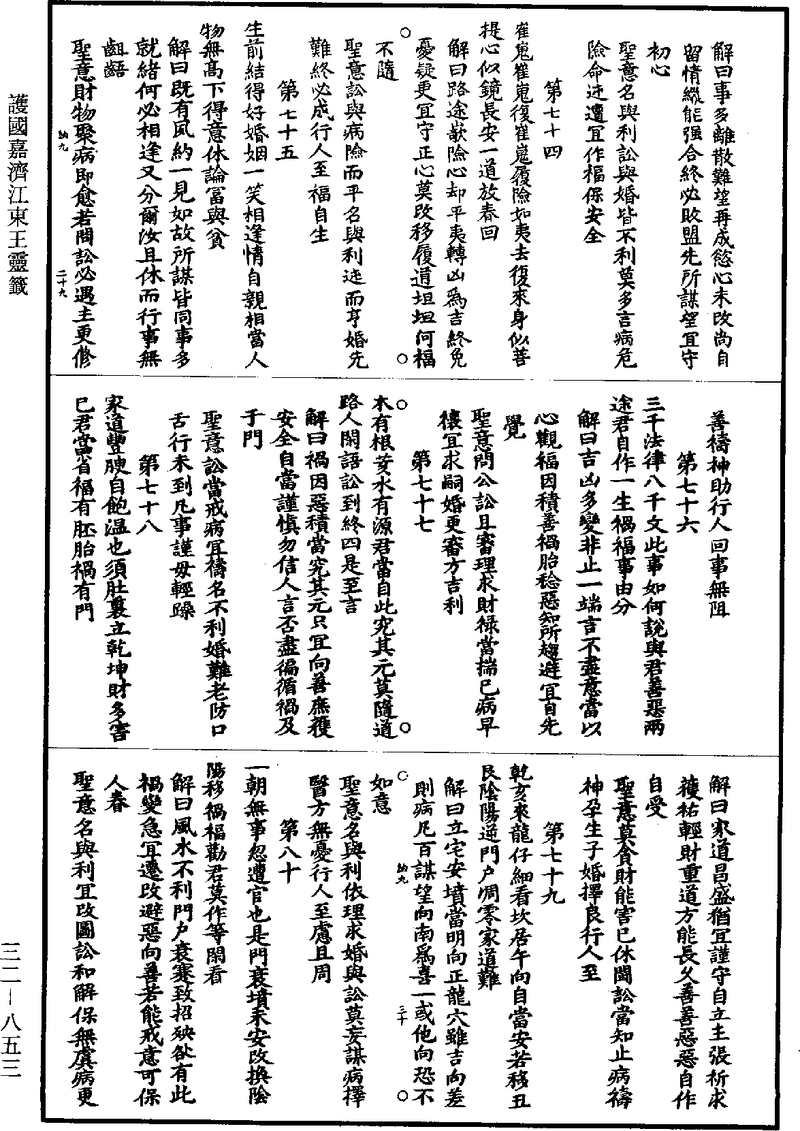 護國嘉濟江東王靈籤
三二—八五三
解曰事多離散難望再成慾心未改尚自
留情纔能强合終必敗盟先所謀望宜守
初心
聖意名與利訟與婚皆不利莫多言病危
險命迍邅宜作福保安全
第七十四
崔嵬崔嵬復崔嵬履險如夷去復來身似菩
提心似鏡長安一道放春回
解曰路途嶔險心却平夷轉凶爲吉終免
憂疑更宜守正心莫改移履道坦坦何福
不隨
聖意訟與病險而平名與利迍而亨婚先
難終必成行人至福自生
第七十五
生前結得好婚姻一笑相逢情自親相當人
物無高下得意休論冨與貧
解曰既有夙約一見如故所謀皆同事多
就緒何必相逢又分爾汝且休而行事無
齟齬
聖意財物聚病即愈若問訟必遇主更修
納九
二十九
善禱神助行人回事無阻
第七十六
三千法律八千文此事如何說與君善惡兩
途君自作一生禍福事由分
解曰吉凶多變非止一端言不盡意當以
心觀福因積善禍胎稔惡知所趨避宜自先
覺
聖意問公訟且審理求財祿當揣己病早
禳宜求嗣婚更審方吉利
第七十七
木有根荄水有源君當自此究其元莫隨道
路人閑語訟到終四是至言
解曰禍因惡積當究其元只宜向善庶獲
安全自當謹愼勿信人言否盡徧循禍及
于門
聖意訟當戒病宜禱名不利婚難老防口
舌行未到凡事謹毋輕躁
第七十八
家道豐腴自飽温也須肚裏立乾坤財多害
己君當省福有胚胎禍有門
解曰家道昌盛猶宜謹守自立主張祈求
䕶祐輕財重道方能長久善善惡惡自作
自受
聖意莫貪財能害已休鬪訟當知止病禱
神孕生子婚擇良行人至
第七十九
乾亥來龍仔細看坎居午向自當安若移丑
艮陰陽逆門户凋零家道難
解曰立宅安墳當明向正龍穴雖吉向差
則病凡百謀望向南爲喜一或他向恐不
納九
三十
如意
聖意名與利依理求婚與訟莫妄謀病擇
醫方無憂行人至慮且周
第八十
一朝無事忽遭官也是門衰墳未安改換陰
陽移禍福勸君莫作等閑看
解曰風水不利門戶衰寒致招殃欲有此
禍變急宜遷改避惡向善若能戒意可保
人春
聖意名與利宜改圖訟和解保無虞病更